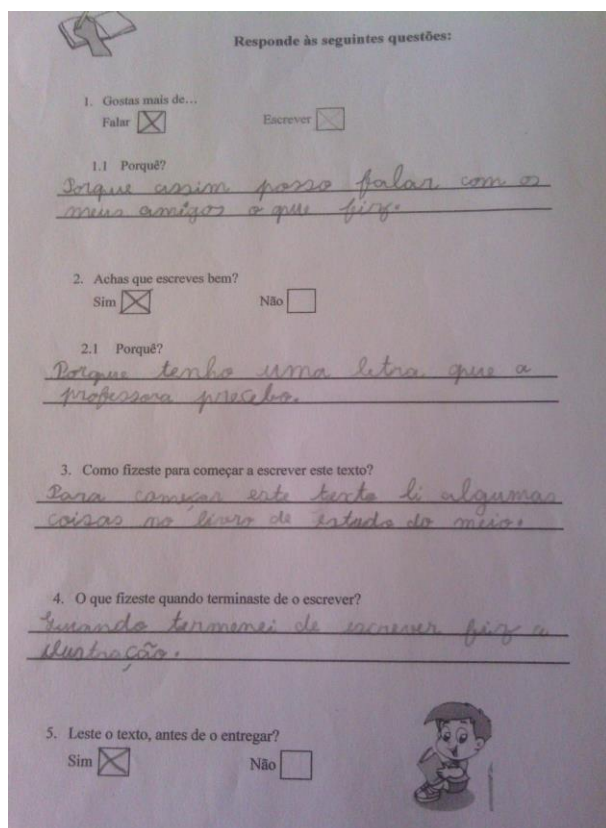 Responde às seguintes questões:
1. Gostas mais de...
Falar Escrever
1.1 Porquê?
Porque assim posso falar com os
meus amigos o que fiz.
2. Achas que escreves bem?
Sim Não
2.1 Porquê?
Porque tenho uma letra que a
professora preceba.
3. Como fizeste para começar a escrever este texto?
Para começar este texto li algumas
coisas no livro de estudo do meio.
4. O que fizeste quando terminaste de o escrever?
Quando termenei de escrever fiz a
ilustração.
5. Leste o texto, antes de o entregar?
Sim Não